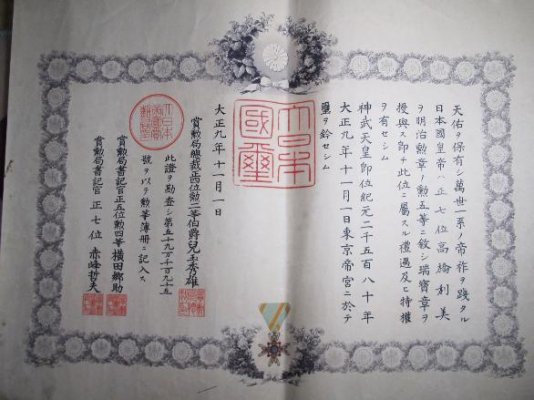 天佑ヲ保有シ萬世一系ノ帝祚ヲ踐タル
日本國皇帝ハ正七位高橋利美
ヲ明治勲章ノ勲五等ニ敍シ瑞寶章ヲ
授與ス即チ此位ニ屬スル禮遇及ヒ特權
ヲ有セシム
神武天皇即位紀元二千五百八十年
大正九年十一月一日東京帝宮ニ於テ
璽ヲ鈐セシム
大日本國璽
大正九年十一月一日
賞勲局總裁正四位勲二等伯爵兒玉秀雄
此證ヲ勘査シ第五十九万千九十五
號ヲ以テ勲等簿冊ニ記入ス
賞勲局書記官正五位勲四等横田郷助
賞勲局書記官正七位赤峰哲夫